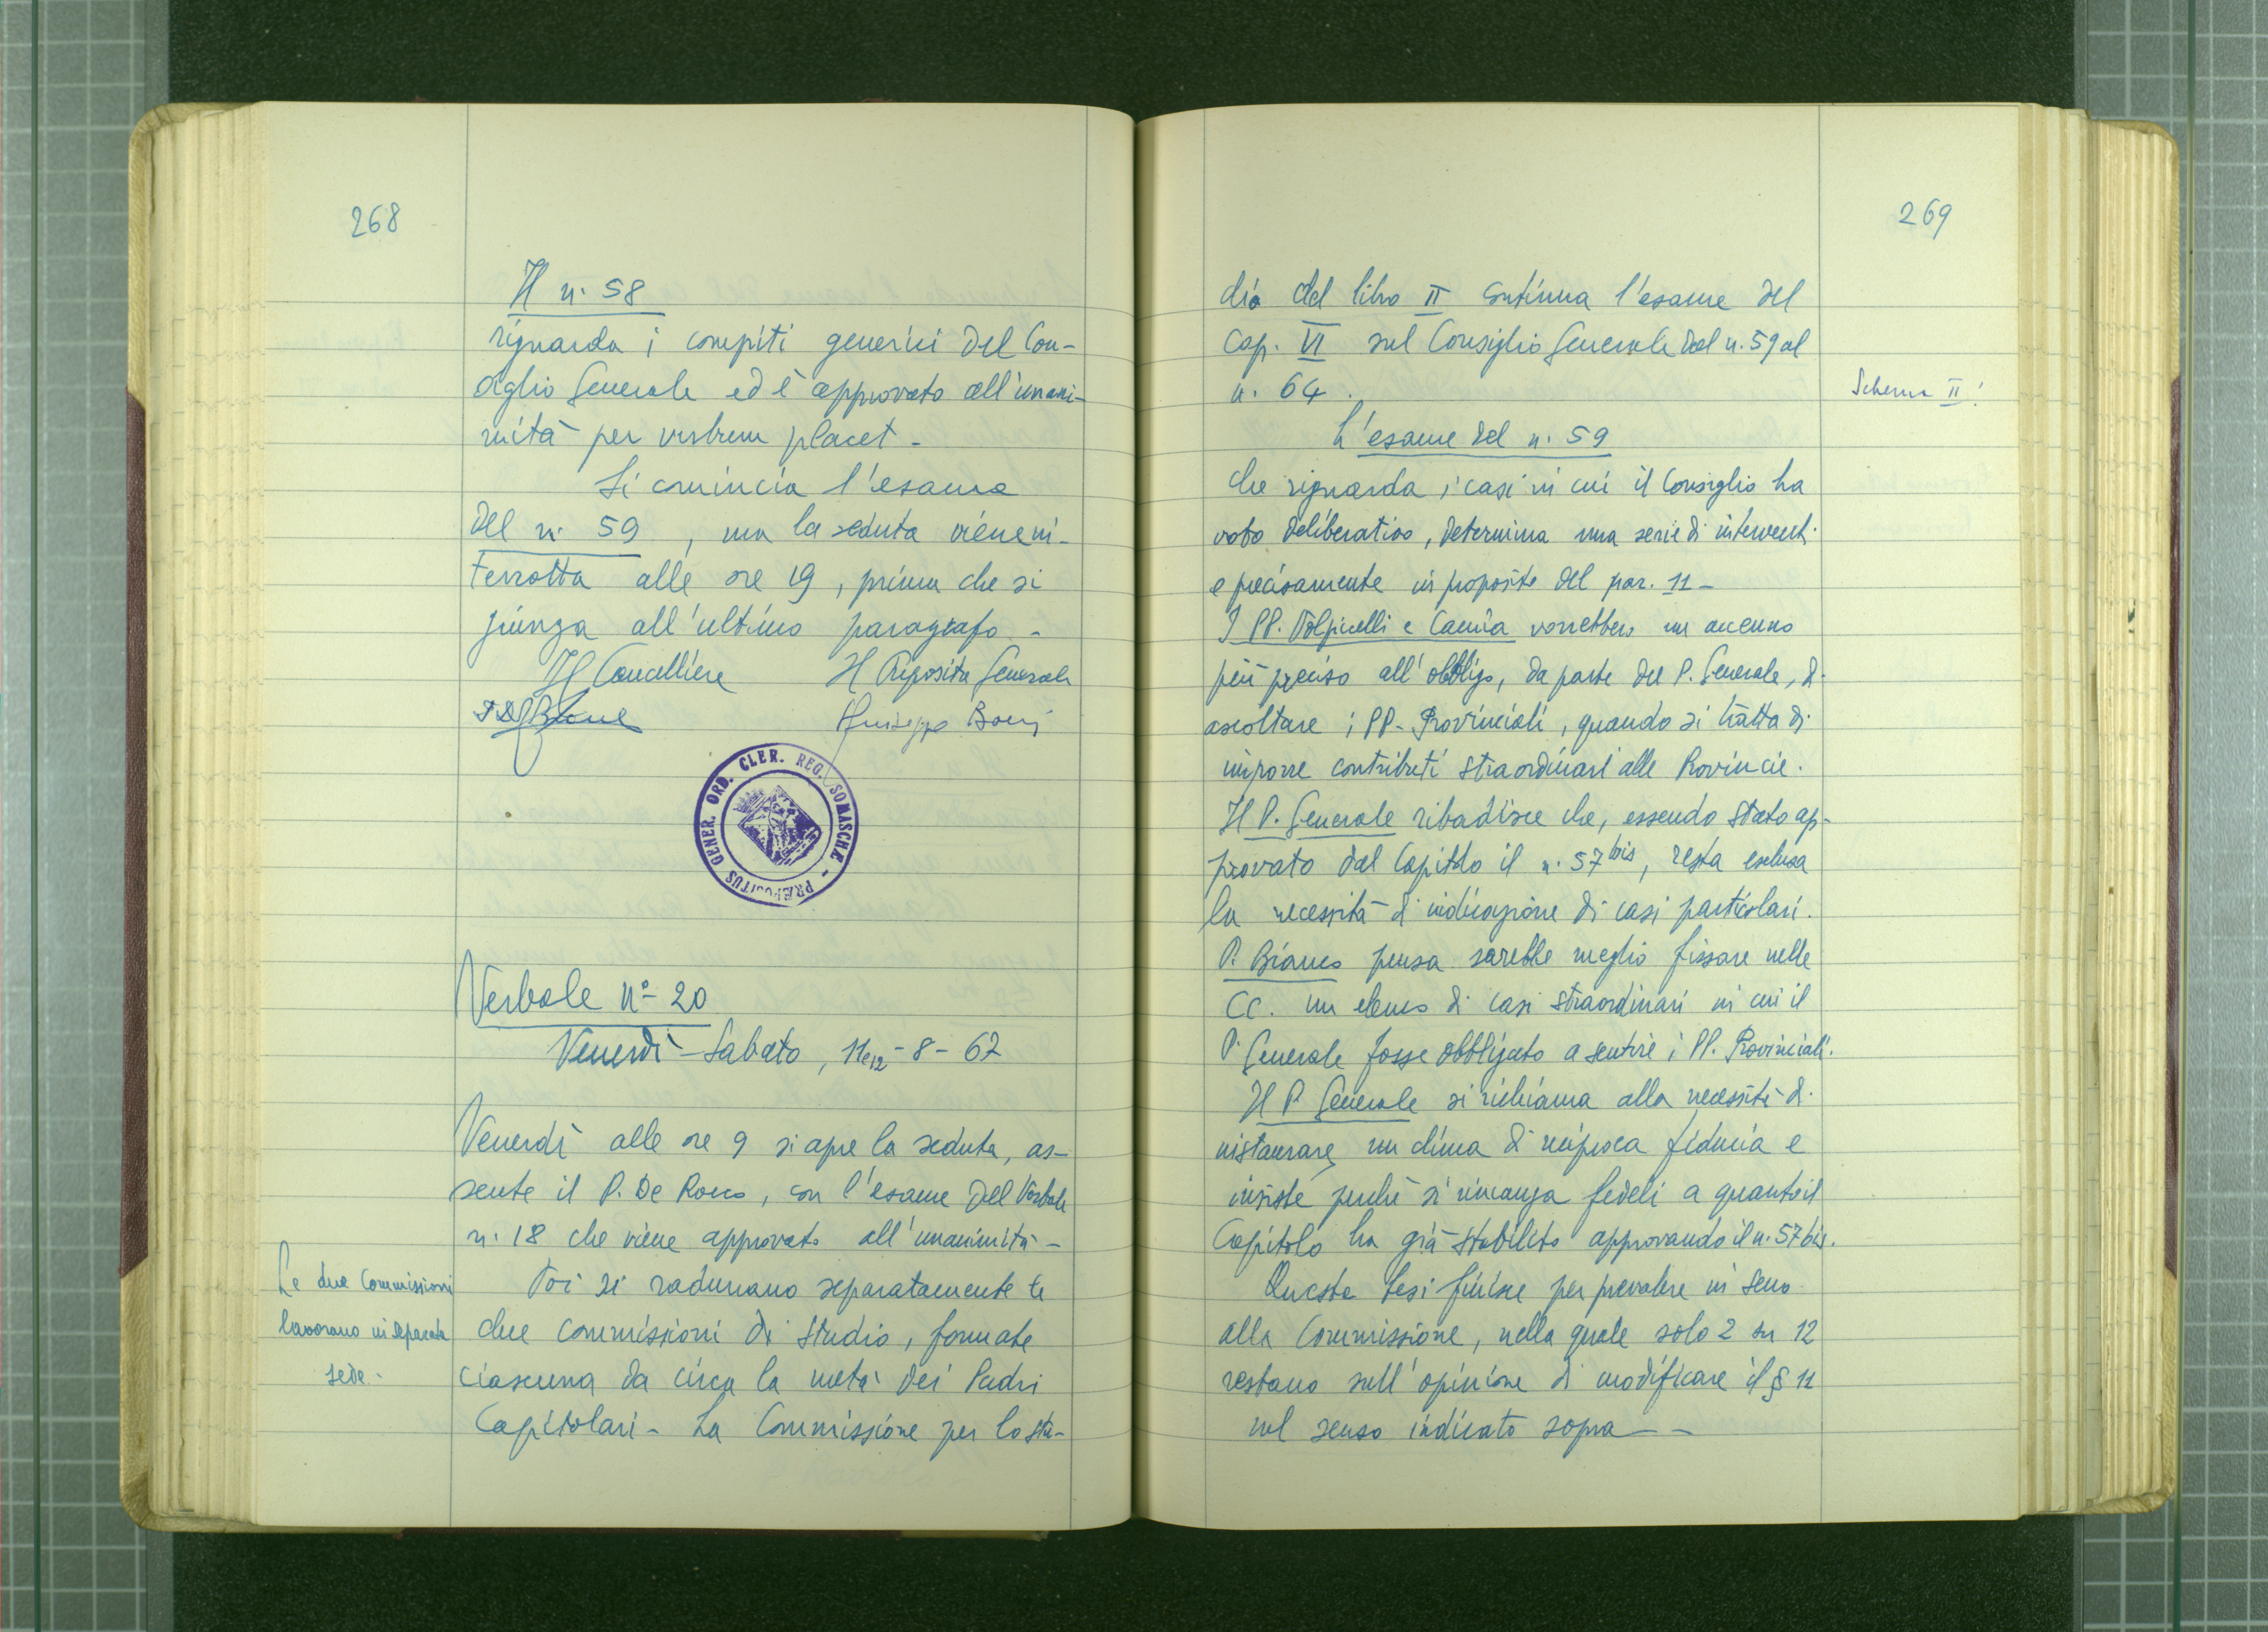 268
Il n. 58
riguarda i compiti generici del Con-
siglio Generale ed è approvato all'unani-
mità per vestrum placet -
Si comincia l'esame
del n. 59, ma la seduta viene in-
terrotta alle ore 19, prima che si
giunga all'ultimo paragrafo -
Il Cancelliere Il Preposito Generale
Giuseppe
PRÆPOSITUS GENER. ORD. CLER. REG. SOMASCHÆ -
Verbale nº 20
Venerdì - Sabato, 11 e 12 - 8 - 67
Venerdì alle ore 9 si apre la seduta, as-
sente il P. De Rocco, con l'esame del Verbale
n. 18 che viene approvato all'unanimità -
Le due Commissioni
lavorano in separata
sede.
Poi si radunano separatamente le
due commissioni di studio, formate
ciascuna da circa la metà dei Padri
Capitolari - La Commissione per lo stu-
269
dio del libro II continua l'esame del
cap. VI sul Consiglio Generale dal n. 59 al
n. 64.
Schema II!
L'esame del n. 59
che riguarda i casi in cui il Consiglio ha
voto deliberativo, determina una serie di interventi
e precisamente in proposito del par. 11 -
I PP. Volpicelli e Camia vorrebbero un accenno
più preciso all'obbligo, da parte del P. Generale, di
ascoltare i PP. Provinciali, quando si tratta di
imporre contributi straordinari alle Provincie.
Il P. Generale ribadisce che, essendo stato ap-
provato dal Capitolo il n. 57 bis, resta esclusa
la necessità di indicazione di casi particolari.
P. Bianco pensa sarebbe meglio fissare nelle
CC. un elenco di casi straordinari in cui il
P. Generale fosse obbligato a sentire i PP. Provinciali.
Il P. Generale si richiama alla necessità di
instaurare un clima di reciproca fiducia e
insiste perché si rimanga fedeli a quanto il
Capitolo ha già stabilito approvando il n. 57 bis.
Questa tesi finisce per prevalere in seno
alla Commissione, nella quale solo 2 su 12
restano sull'opinione di modificare il § 11
nel senso indicato sopra - -